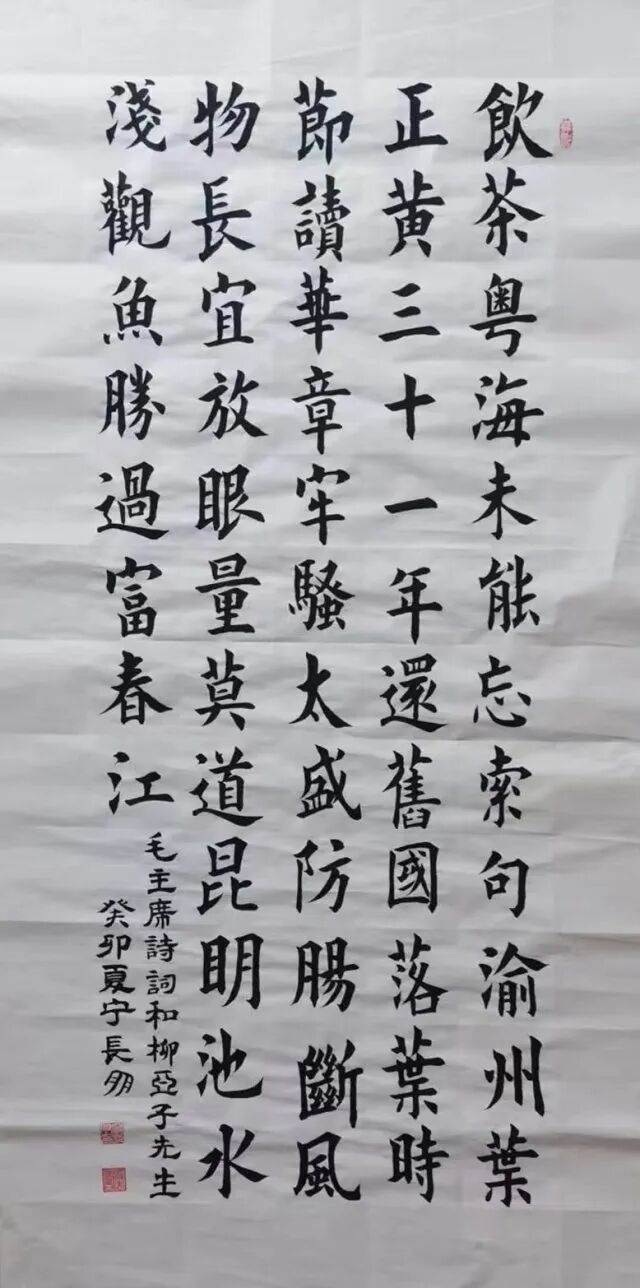 飲茶粤海未能忘索句渝州葉
正黄三十一年還舊國落葉時
節讀華章牢騷太盛防腸斷風
物長宜放眼量莫道昆明池水
淺觀魚勝過富春江
毛主席詩詞和柳亞子先生
癸卯夏宁長朋